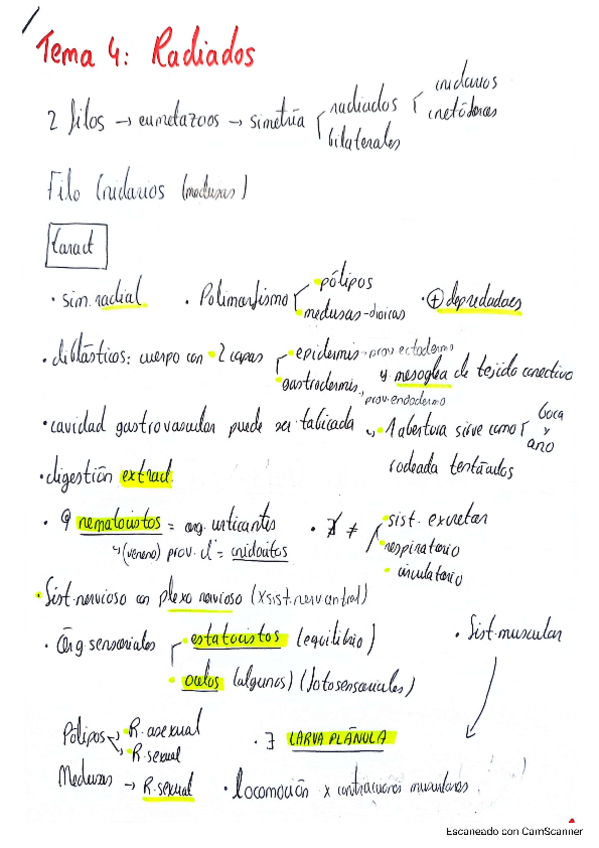 Tema 4: Radiados
2 filos → eumetazoos → simetría radiados cnidarios
ctenóforos
bilaterales
Filo Cnidarios (medusas)
Caract
· sim. radial · Polimorfismo pólipos
medusas-dioicas
· ⊕ depredadores
· diblásticos: cuerpo con 2 capas epidermis - prov ectodermo
gastrodermis, prov. endodermo
y mesoglea de tejido conectivo
· cavidad gastrovascular puede ser tabicada ↳ 1 abertura sirve como boca y ano
rodeada tentáculos
· digestión extrac.
· nematocistos = org. urticantes
↳ (veneno) prov. cl = cnidocitos
· ∄ ≠ sist. excretor
respiratorio
circulatorio
· Sist. nervioso con plexo nervioso (X sist. nerv central)
· Órg. sensoriales estatocistos (equilibrio)
ocelos (algunos) (fotosensoriales)
· Sist. muscular
Pólipos R. asexual
R. sexual
Medusas → R. sexual
· ∃ LARVA PLÁNULA
· locomoción x contracciones musculares
Escaneado con CamScanner